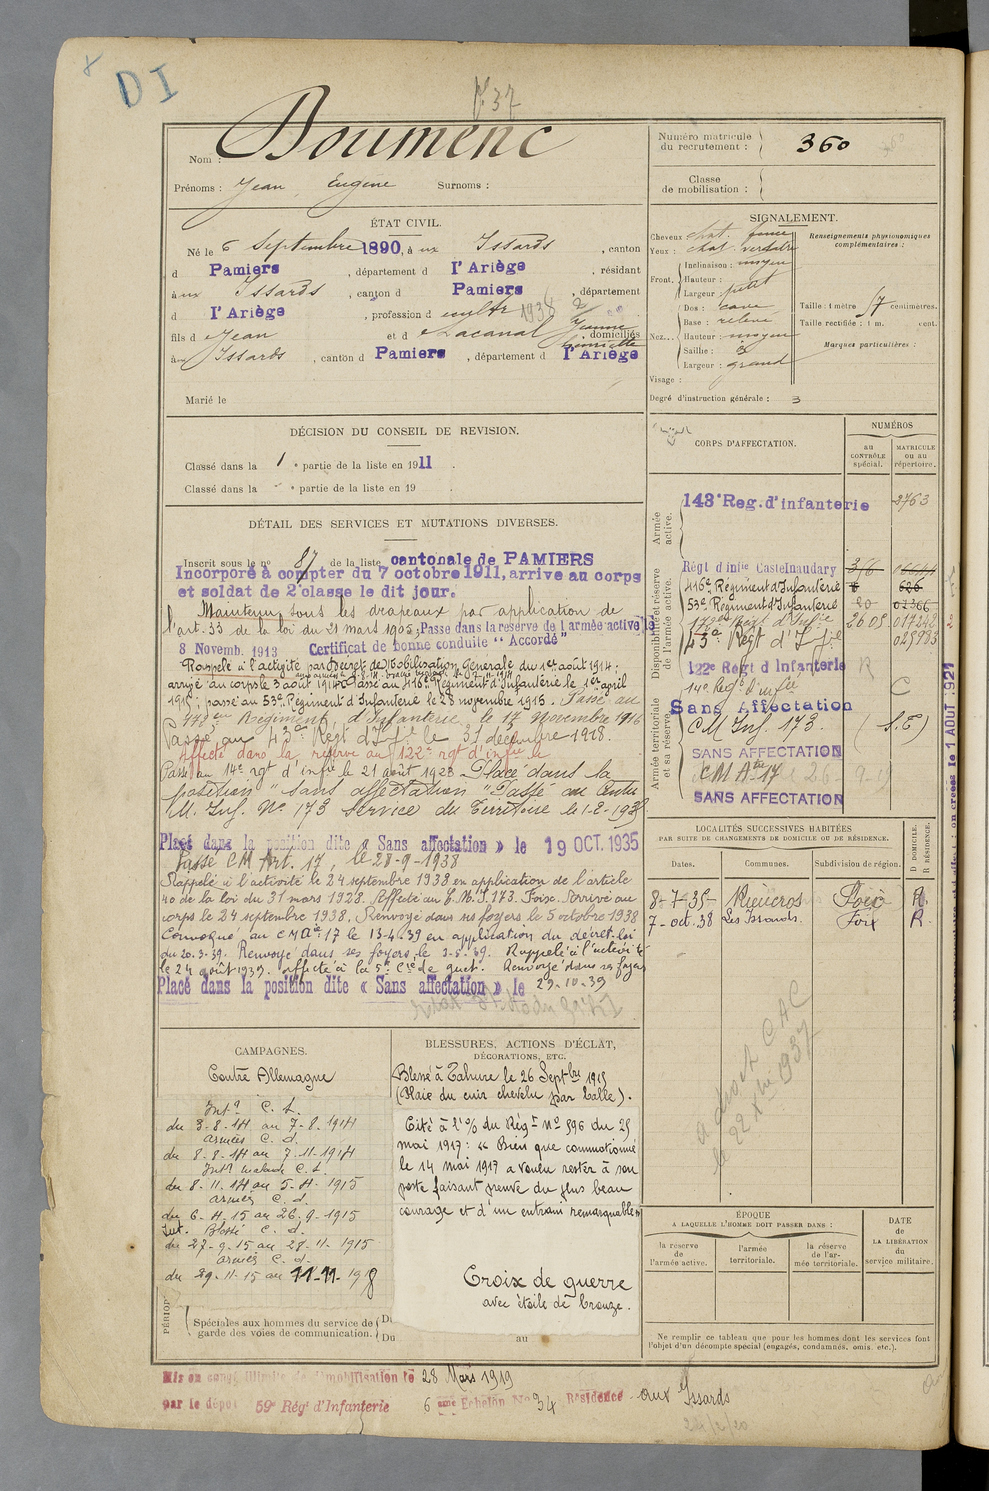 DI
Nom : Doumenc
Prénoms : Jean Eugène Surnoms :
Numéro matricule du recrutement : 360
Classe de mobilisation :
ÉTAT CIVIL.
Né le 6 Septembre 1890, à ux Issards, canton
d Pamiers, département d l'Ariège, résidant
à ux Issards, canton d Pamiers, département
d l'Ariège, profession d cultr 1938
fils d e Jean et d e Lacanal Jeanne Henriette domiciliés
à ux Issards, canton d Pamiers, département d l'Ariège
Marié le
SIGNALEMENT.
Cheveux chat. foncé
Yeux : chat. verdatre
Front. Inclinaison : moyen
Hauteur :
Largeur : petit
Nez... Dos : cave
Base : relevé
Hauteur : moyen
Saillie :
Largeur : grand
Visage :
Renseignements physionomiques complémentaires :
Taille : 1 mètre 57 centimètres.
Taille rectifiée : 1 m. cent.
Marques particulières :
Degré d'instruction générale : 3
DÉCISION DU CONSEIL DE REVISION.
Classé dans la 1 e partie de la liste en 1911.
Classé dans la e partie de la liste en 19 .
DÉTAIL DES SERVICES ET MUTATIONS DIVERSES.
Inscrit sous le no 87 de la liste cantonale de PAMIERS
Incorporé à compter du 7 octobre 1911, arrive au corps
et soldat de 2e classe le dit jour.
Maintenu sous les drapeaux par application de
l'art. 33 de la loi du 21 mars 1905; Passe dans la réserve de l'armée active le
8 Novemb. 1913 Certificat de bonne conduite "Accordé"
Rappelé à l'activité par Décret de Mobilisation Générale du 1er août 1914;
arrivé au corps le 3 août 1914. Passé au 416e Régiment d'Infanterie le 1er avril
1915, passé au 53e Régiment d'Infanterie le 28 novembre 1915. Passé au
112e Régiment d'Infanterie le 17 Novembre 1916
Passé au 43e Régt d'Inf.ie le 31 décembre 1918.
Affecté dans la réserve au 122e rgt d'infie le
Passé au 14e rgt d'infie le 21 août 1928 Placé dans la
position "sans affectation" Passé au Centre
M. Inf. No 173 service du Territoire le 1-2-1935
Placé dans la position dite « Sans affectation » le 19 OCT. 1935
Passé CM Art. 17, le 28-9-1938
Rappelé à l'activité le 24 septembre 1938 en application de l'article
40 de la loi du 31 mars 1928. Affecté au C.M.I. 173. Foix. Arrivé au
corps le 24 septembre 1938, Renvoyé dans ses foyers le 5 octobre 1938
Convoqué au CMAie 17 le 13-4-39 en application du décret-loi
du 20.3.39. Renvoyé dans ses foyers le 3-5-39. Rappelé à l'activité
le 24 août 1939. affecté à la 5e Cie de guet. Renvoyé dans ses foyers
Placé dans la position dite « Sans affectation » le 29-10-39
CORPS D'AFFECTATION.
NUMÉROS
au CONTRÔLE spécial.
MATRICULE ou au répertoire.
Armée active.
143e Reg. d'infanterie 2763
Disponibilité et réserve de l'armée active.
Régt d'infie Castelnaudary 376
416e Régiment d'Infanterie 626
53e Régiment d'Infanterie 20 01366
112e Régt d'Infie 2608 017242
43e Régt d'Infie 025993
122e Régt d'Infanterie R
14e Regt d'infie C
Armée territoriale et sa réserve.
Sans Affectation
CM Inf. 173 (S.E)
SANS AFFECTATION
CM Atie 17
SANS AFFECTATION
LOCALITÉS SUCCESSIVES HABITÉES
PAR SUITE DE CHANGEMENTS DE DOMICILE OU DE RÉSIDENCE.
Dates. Communes. Subdivision de région. D DOMICILE. R RÉSIDENCE.
8-7-35- Rieucros Foix R.
7-oct.38 Les Issards. Foix R
a droit CAC
le 22 1937
CAMPAGNES.
Contre Allemagne
Intr C. S.
du 3-8-14 au 7-8-1914
armées C. d.
du 8-8-14 au 7-11-1914
Intr malade C. S.
du 8-11-14 au 5-4-1915
armées C. d.
du 6-4-15 au 26-9-1915
Int. Blessé C. d.
du 27-9-15 au 28-11-1915
armées C. d.
du 29-11-15 au 11-11-1918
PÉRIOD
Spéciales aux hommes du service de garde des voies de communication.
Du
Du au
BLESSURES, ACTIONS D'ÉCLAT,
DÉCORATIONS, ETC.
Blessé à Tahure le 26 Septbre 1915
(Plaie du cuir chevelu par balle).
Cité à l'O/ du Régt No 596 du 25
mai 1917 : « Bien que commotionné
le 14 mai 1917 a voulu rester à son
poste faisant preuve du plus beau
courage et d'un entrain remarquable »
Croix de guerre
avec étoile de bronze.
ÉPOQUE
A LAQUELLE L'HOMME DOIT PASSER DANS :
la réserve de l'armée active.
l'armée territoriale.
la réserve de l'armée territoriale.
DATE de LA LIBÉRATION du service militaire.
Ne remplir ce tableau que pour les hommes dont les services font
l'objet d'un décompte spécial (engagés, condamnés, omis, etc.).
Mis en congé illimité de démobilisation le 28 Mars 1919
par le dépôt 59e Régt d'Infanterie 6 ème Echelon No 34 Résidence aux Issards